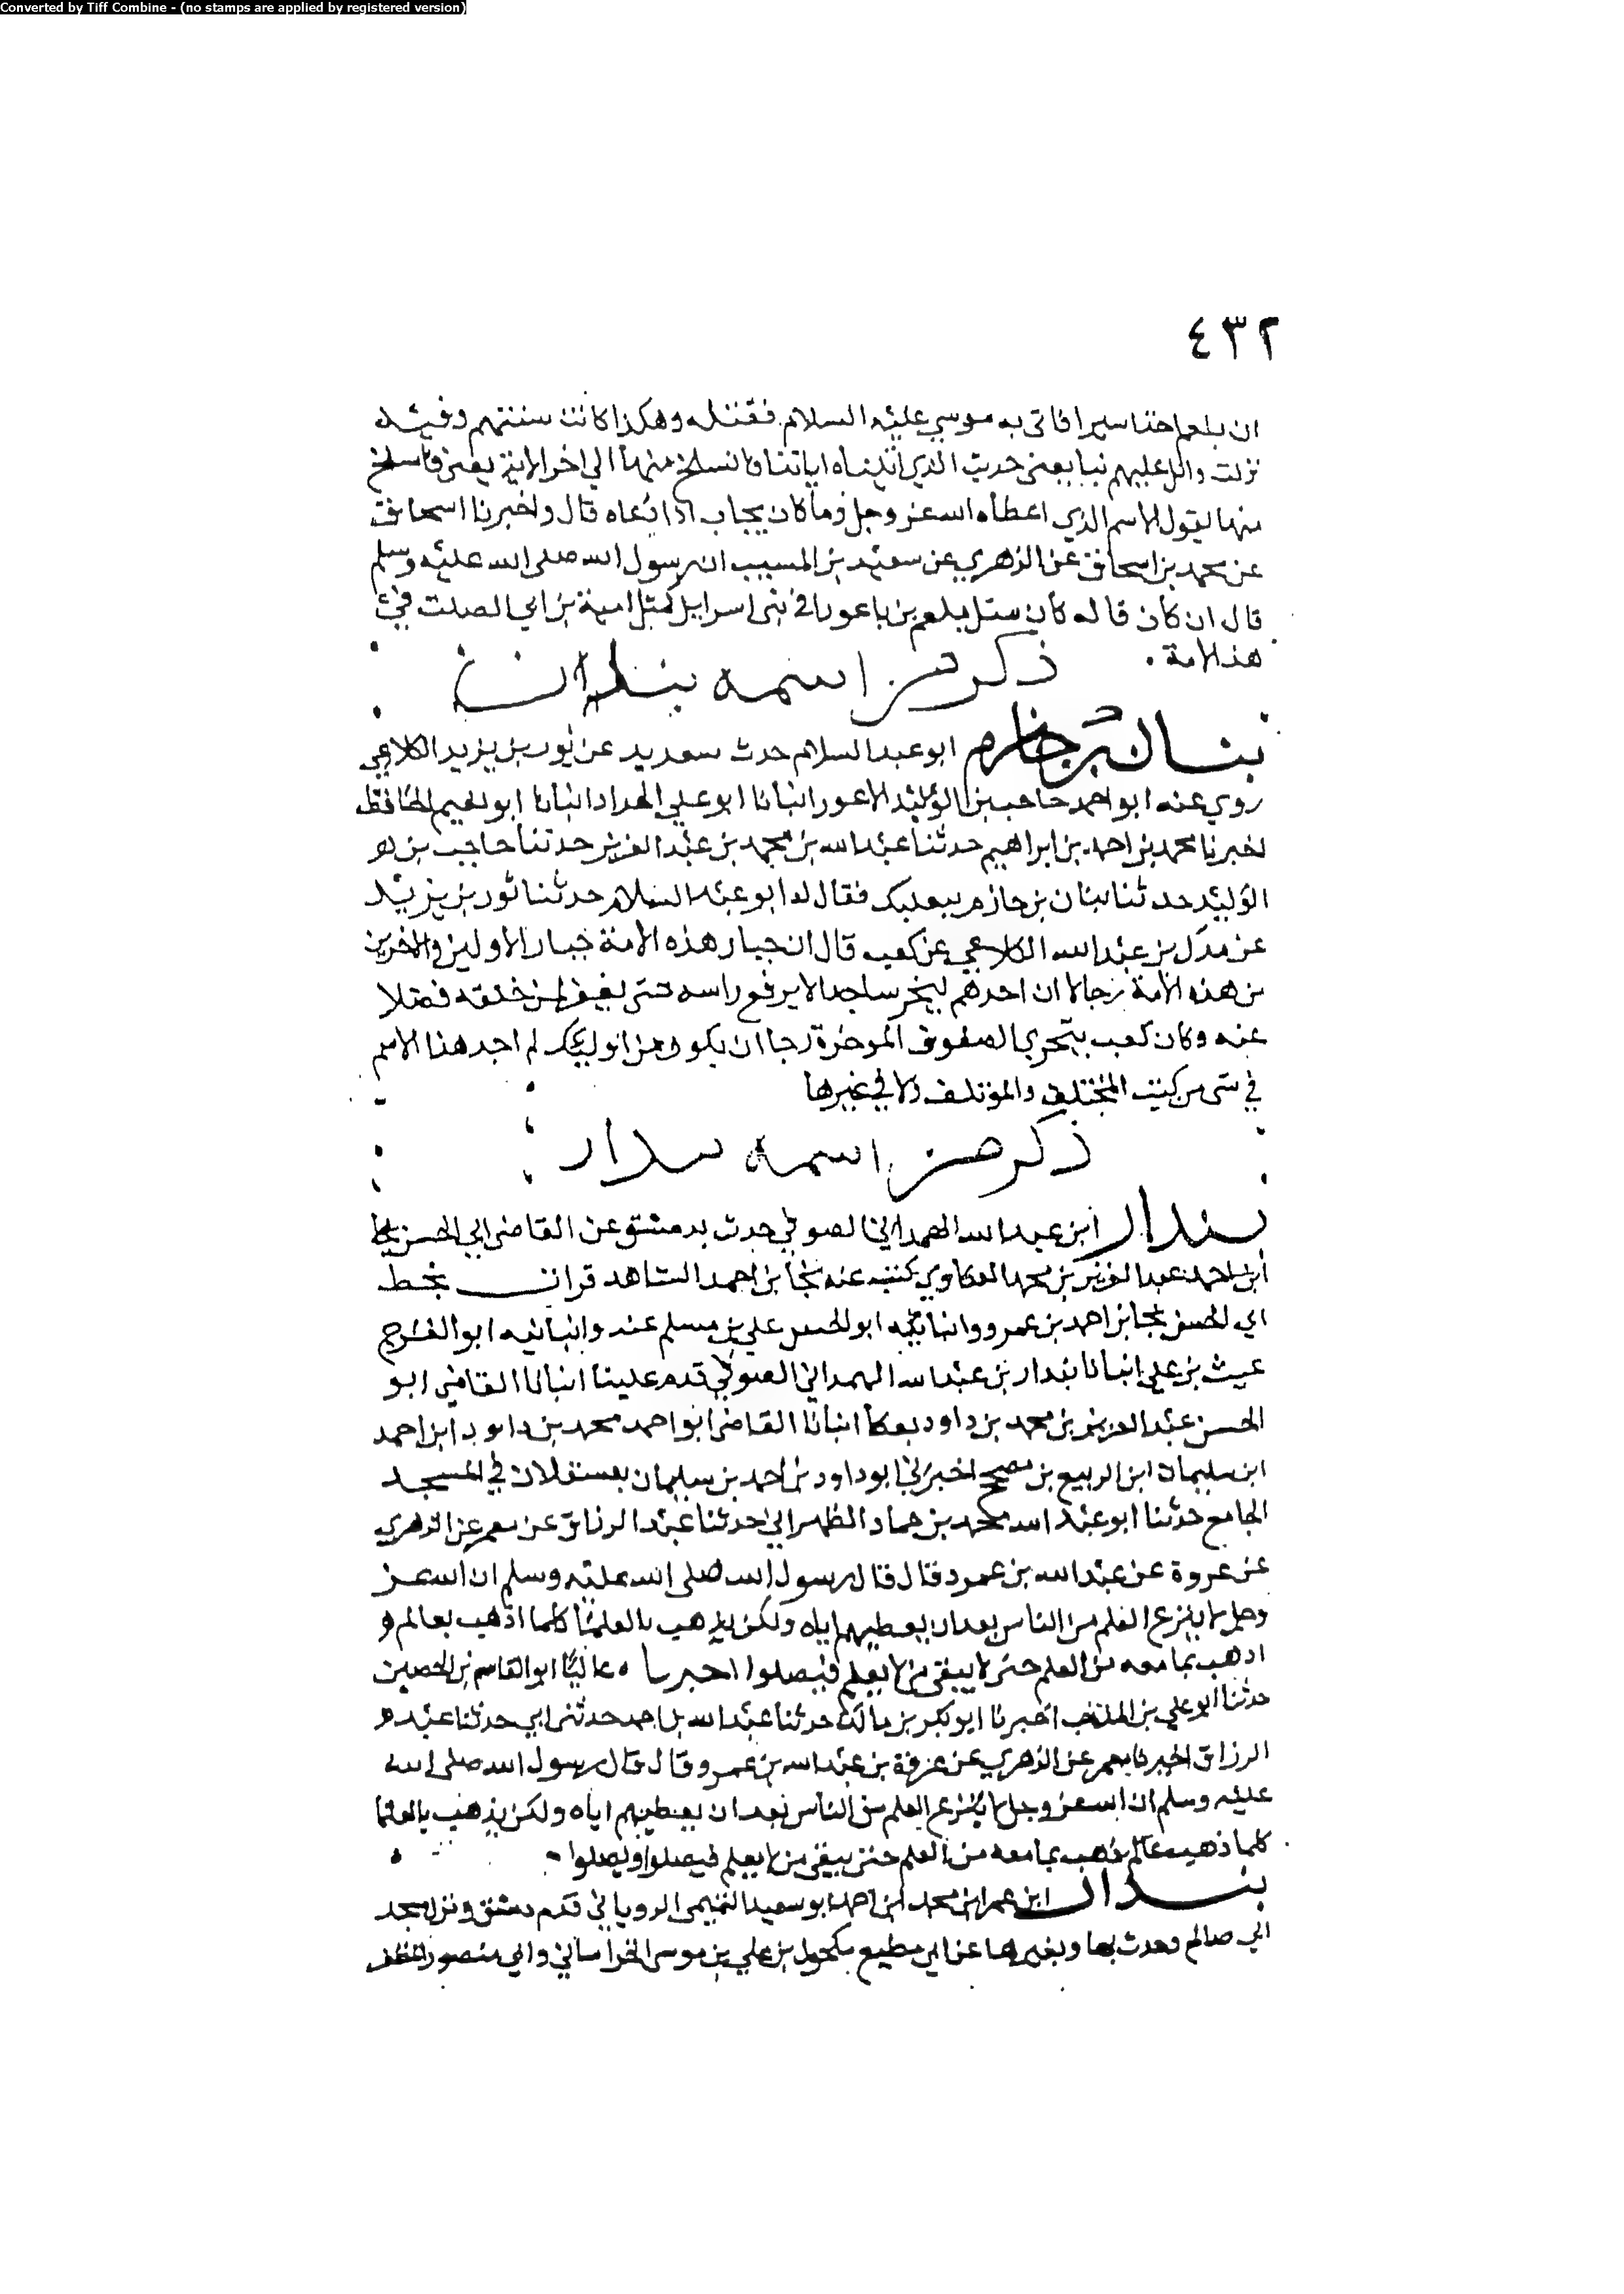 Converted by Tiff Combine - (no stamps are applied by registered version)
٤٣٢
ان بلعم اسيرا فاتى به موسي عليه السلام فقتله وهكذا كانت سنتهم وفيه
نزلت واتل عليهم نبا يعني حديث الذي اتيناه اياتنا فانسلخ منها الي اخر الاية يعني فانسلخ
منها يقول الاسم الذي اعطاه الله عز وجل وما كان يجاب اذا دعاه قال واخبرنا اسحاق
عن محمد بن اسحاق عن الزهري عن سعيد بن المسيب ان رسول الله صلى الله عليه وسلم
قال ان كان قاله كان مثل بلعم بن باعورا في بني اسرايل كمثل امية بن ابي الصلت في
هذه الامة
ذكر من اسمه بنان
بنان بن حازم ابو عبد السلام حدث عن ثور بن يزيد الكلاعي
روي عنه ابو احمد حاجب بن الوليد الاعور انبانا ابو علي الحداد انبانا ابو نعيم الحافظ
اخبرنا محمد بن احمد بن ابراهيم حدثنا عبد الله بن محمد بن عبد العزيز حدثنا حاجب بن
الوليد حدثنا بنان بن حازم ببعلبك فقال له ابو عبد السلام حدثنا ثور بن يزيد
عن مدرك بن عبد الله الكلاعي عن كعب قال ان خيار هذه الامة خيار الاولين والاخرين
من هذه الامة رجالا ان احدهم ليخر ساجدا لا يرفع راسه حتى يغفر لمن خلفه فضلا
عنه وكان كعب يتحري الصفوف الموخرة رجا ان يكون من اوليك لم اجد هذا الاسم
في شي من كتب المختلف والموتلف ولا في غيرها
ذكر من اسمه بندار
بندار ابن عبد الله الهمداني الصوفي حدث بدمشق عن القاضي ابي الحسن
ابن احمد عبد العزيز بن محمد العكاوي كتب عنه نجا بن احمد الشاهد قرات بخط
ابي الحسن نجا بن احمد بن عمرو وانبانيه ابو الحسن علي بن مسلم عنه وانبانيه ابو الفرج
غيث بن علي انبانا بندار بن عبد الله الهمداني الصوفي قدم علينا انبانا القاضي ابو
الحسن عبد العزيز بن محمد بن داود بعكا انبانا القاضي ابو احمد محمد بن داود ابن احمد
ابن سليمان ابن الربيع بن مصحح اخبرني ابو داود بن احمد بن سليمان بعسقلان في المسجد
الجامع حدثنا ابو عبد الله محمد بن حماد الظهراني حدثنا عبد الرزاق عن معمر عن الزهري
عن عروة عن عبد الله بن عمرو قال قال رسول الله صلى الله عليه وسلم ان الله عز
وجل لا ينزع العلم من الناس بعد ان يعطيهم اياه ولكن يذهب بالعلما كلما اذهب بعالم
اذهب بما معه من العلم حتى لا يبقى من لا يعلم فيضلوا اخبرنا عاليا ابو القاسم بن الحصين
حدثنا ابو علي بن المذهب اخبرنا ابو بكر بن مالك حدثنا عبد الله بن احمد حدثني ابي حدثنا عبد
الرزاق اخبرنا معمر عن الزهري عن عروة بن عبد الله بن عمرو قال قال رسول الله صلى الله
عليه وسلم ان الله عز وجل لا ينزع العلم من الناس بعد ان يعطيهم اياه ولكن يذهب بالعلما
كلما ذهب عالم ذهب بما معه من العلم حتى يبقى من لا يعلم فيضلوا ويضلوا
بندار ابن عمر ابن محمد ابن احمد ابو سعيد التميمي الروياني قدم دمشق ونزل مسجد
ابي صالح وحدث بها وبغيرها عن ابي مطيع مكحول بن علي بن موسى الخراساني وابي منصور المظفر